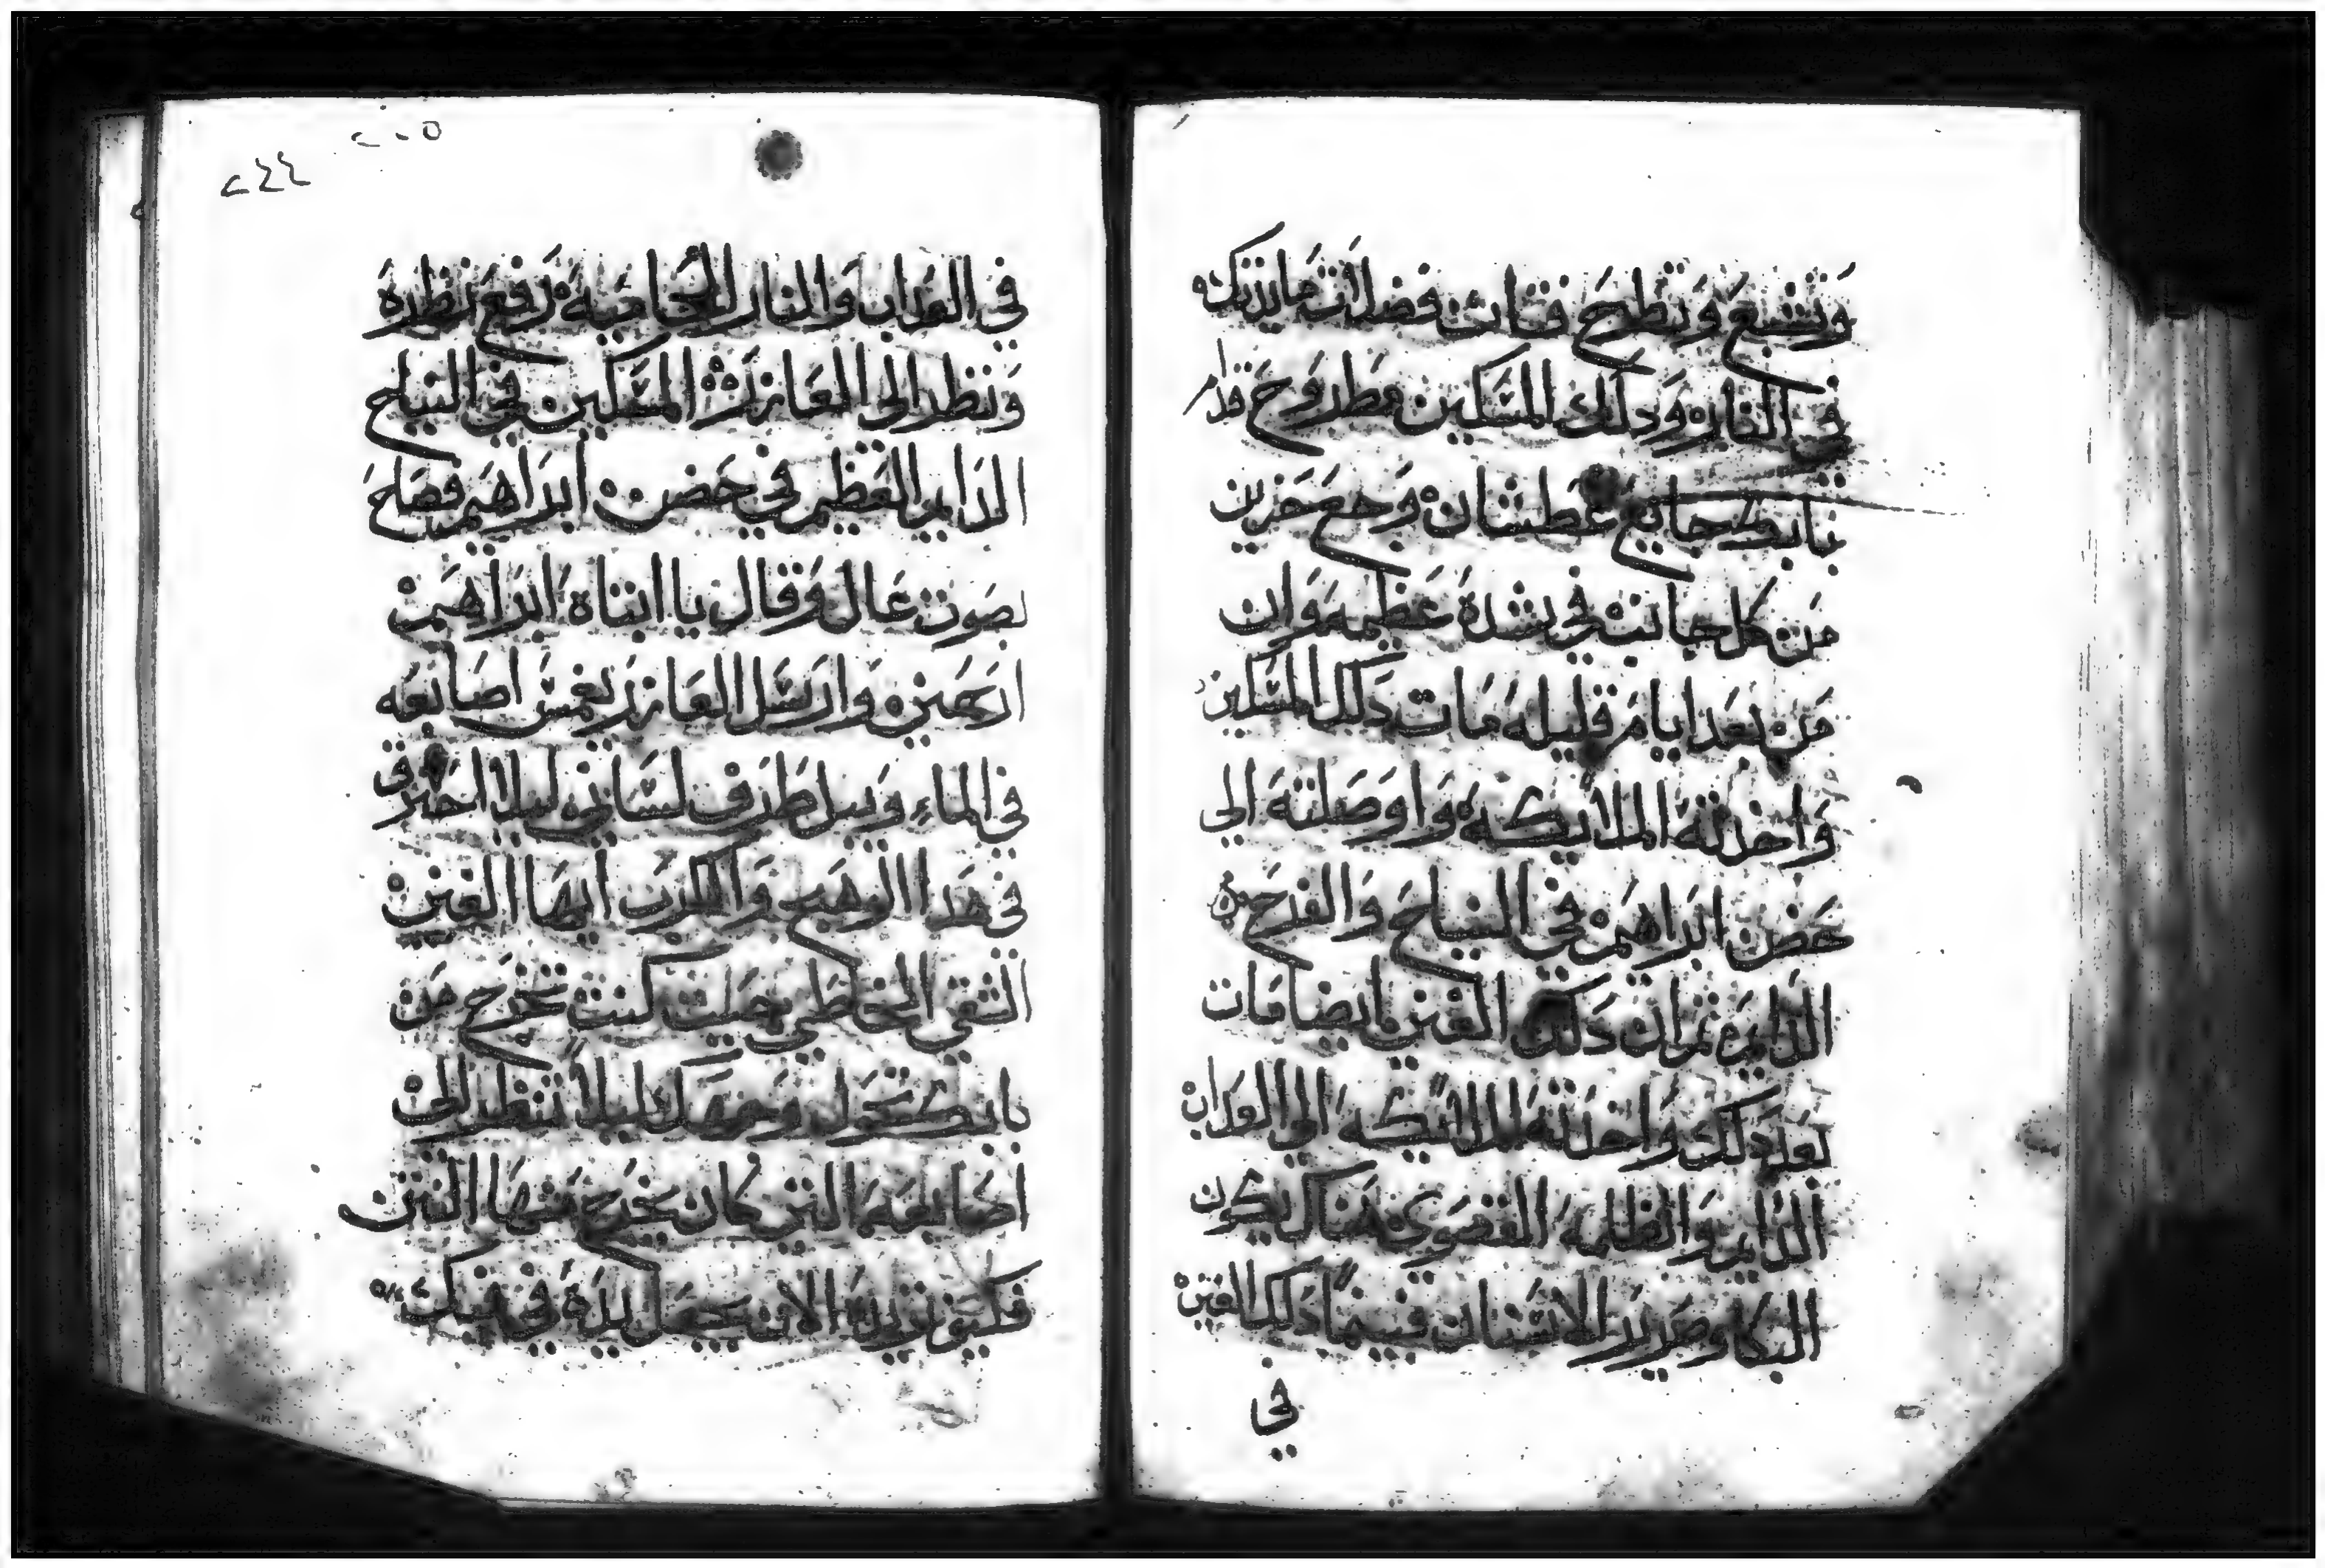 وتشبع وتطرح فتات فضلات مايدتك
في النار وذلك المسكين مطروح قدام
بابك جايع عطشان وجع حزين
من كل جانب في شدة عظيمه وان
من بعد ايام قليله مات ذلك المسكين
واخذته الملائكه واوصلته الى
حضن ابراهيم في النياح والفرح
الدايم ثم ان ذلك الغني ايضا مات
بعد ذلك واخذته الملائكه الى العذاب
الدايم والظلمه القصوى هناك يكون
البكا وصرير الاسنان فبينما ذلك الغني
في
٢٠٥
٢٤٤
في العذاب والنار الحاميه رفع نظره
ونظر الى العازر المسكين في النياح
الدايم العظيم في حضن ابراهيم فصاح
بصوت عال وقال يا ابتاه ابراهيم
ارحمني وارسل العازر يغمس اصابعه
في الماء ويبل طرف لساني ليلا احترق
في هذا اللهيب ايها الغني
الشقي الخاطي كنت تخرج من
بابك تحول وجهك ليلا تنظر الى
التي كان يخرج منها النتن
فكيف تريد الان يجعل يده في فيك